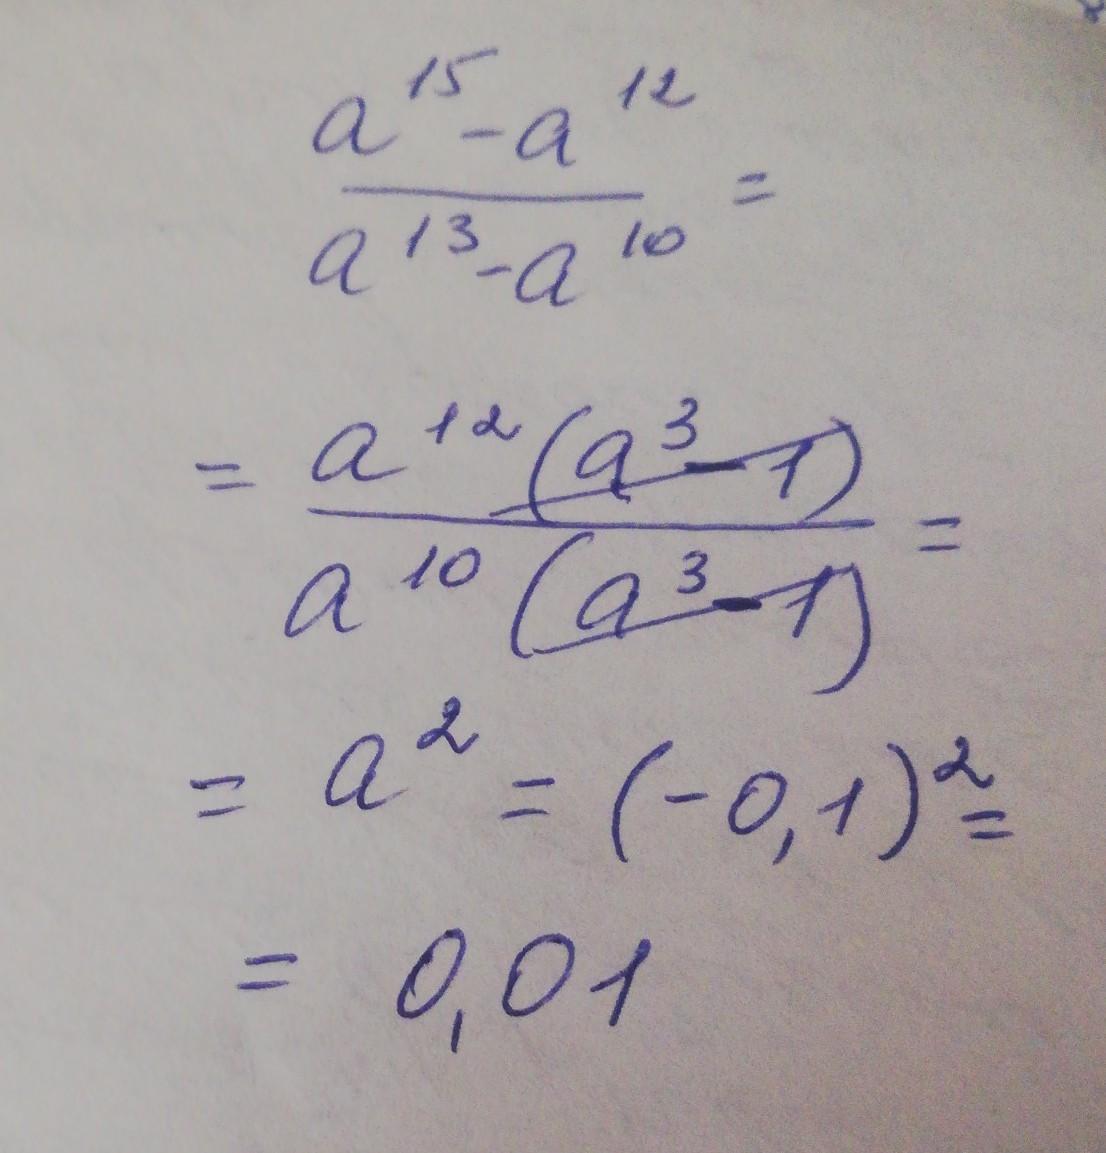 a¹⁵ - a¹²
a¹³ - a¹⁰ =
= a¹² (a³ - 1)
a¹⁰ (a³ - 1) =
= a² = (-0,1)² =
= 0,01